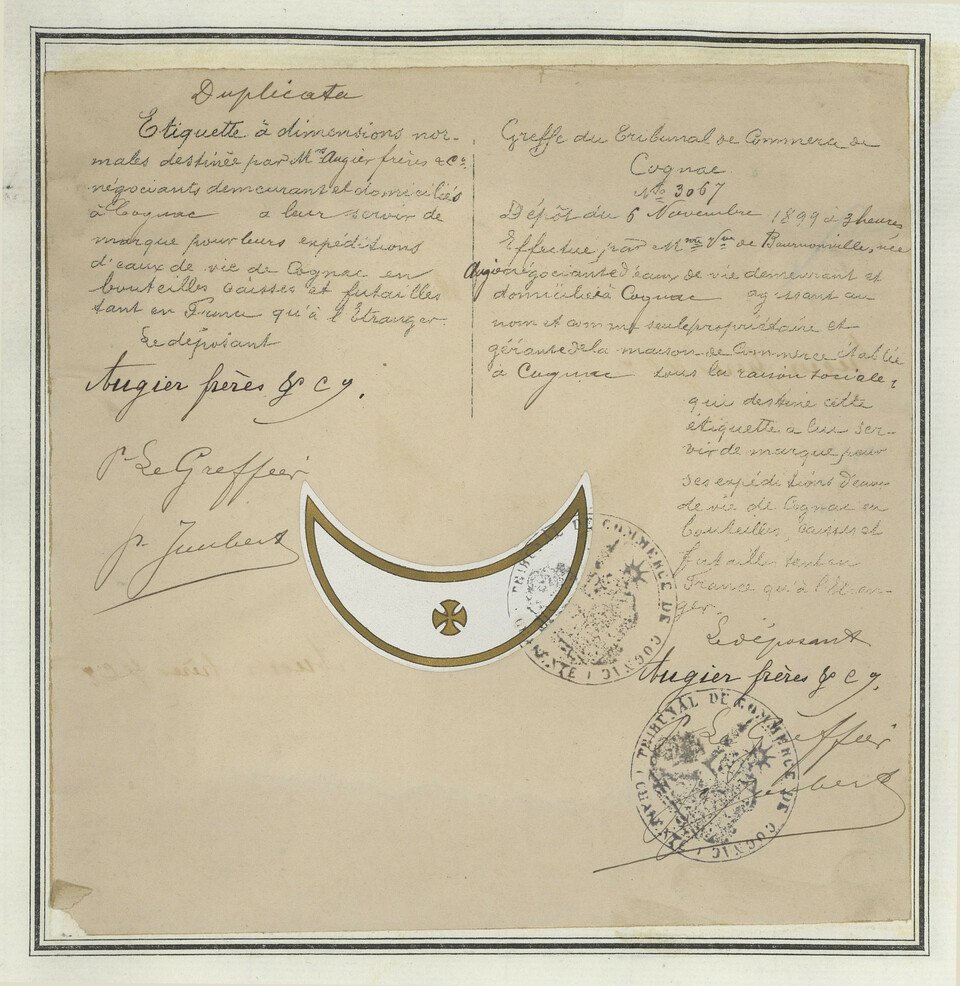 Duplicata
Etiquette à dimensions nor-
males destinée par Mrs Augier frères & Co
négociants demeurant et domiciliés
à Cognac a leur servir de
marque pour leurs expéditions
d'eaux de vie de Cognac en
bouteilles caisses et futailles
tant en France qu'à l'Etranger.
Le déposant
Augier frères & Cy.
pr Le Greffier
p. Juubert
Greffe du Tribunal de Commerce de
Cognac
No 3067
Dépôt du 6 Novembre 1899 à 3 heures
Effectué par Mme Vve de Bournonville, née
Augier négociante d'eaux de vie demeurant et
domiciliée à Cognac agissant au
nom et comme seule propriétaire et
gérante de la maison de Commerce établie
à Cognac sous la raison sociale :
qui destine cette
étiquette a lui ser-
vir de marque pour
ses expéditions d'eaux
de vie de Cognac en
bouteilles, caisses et
futailles tant en
France qu'à l'étran-
ger.
Le déposant
Augier frères & Cy.
pr Le Greffier
TRIBUNAL DE COMMERCE DE COGNAC
TRIBUNAL DE COMMERCE DE COGNAC